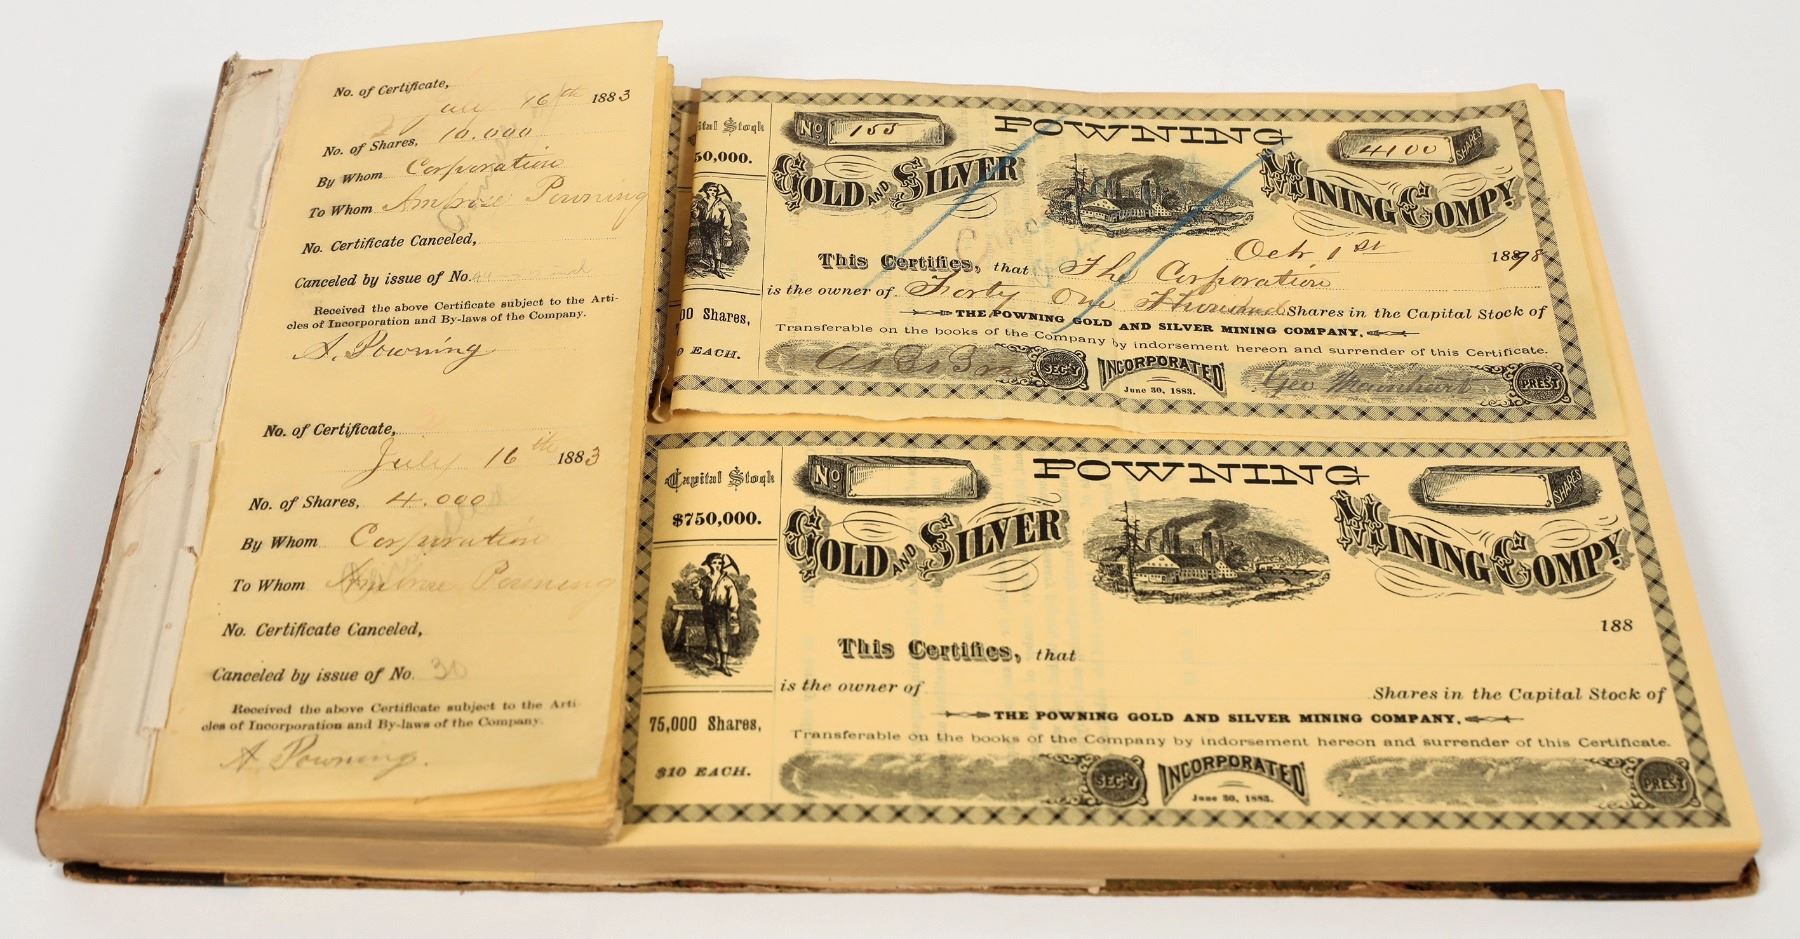 No. of Certificate,
16th 1883
No. of Shares, 10.000
By Whom Corporation
To Whom Ambrose Powning
No. Certificate Canceled,
Canceled by issue of No.
Received the above Certificate subject to the Arti-
cles of Incorporation and By-laws of the Company.
A. Powning
No. of Certificate,
July 16th 1883
No. of Shares, 4.000
By Whom Corporation
To Whom Ambrose Powning
No. Certificate Canceled,
Canceled by issue of No. 30
Received the above Certificate subject to the Arti-
cles of Incorporation and By-laws of the Company.
A Powning.
ital Stock
50,000.
00 Shares,
0 EACH.
No. 155
POWNING
4100 SHARES
GOLD AND SILVER MINING COMPY.
Oct 1st 1898
This Certifies, that The Corporation
is the owner of Forty One Thousand Shares in the Capital Stock of
THE POWNING GOLD AND SILVER MINING COMPANY,
Transferable on the books of the Company by indorsement hereon and surrender of this Certificate.
SEC'Y
INCORPORATED
June 30, 1883.
Geo Mainhart
PREST
Capital Stock
$750,000.
75,000 Shares,
$10 EACH.
No.
POWNING
SHARES
GOLD AND SILVER MINING COMPY.
188
This Certifies, that
is the owner of Shares in the Capital Stock of
THE POWNING GOLD AND SILVER MINING COMPANY,
Transferable on the books of the Company by indorsement hereon and surrender of this Certificate.
SEC'Y
INCORPORATED
June 30, 1883.
PREST